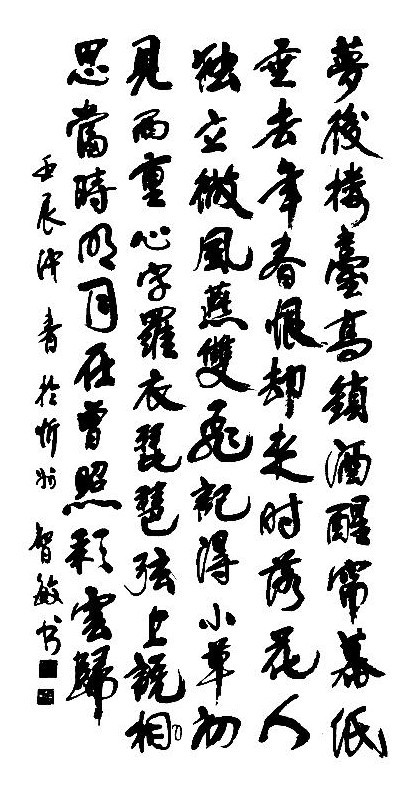 夢後楼臺高鎖酒醒帘幕低
垂去年春恨却来时落花人
独立微風燕雙飛記得小草初
見兩重心字羅衣琵琶弦上説相
思當時明月在曾照彩雲歸
壬辰仲春於忻州智敏书